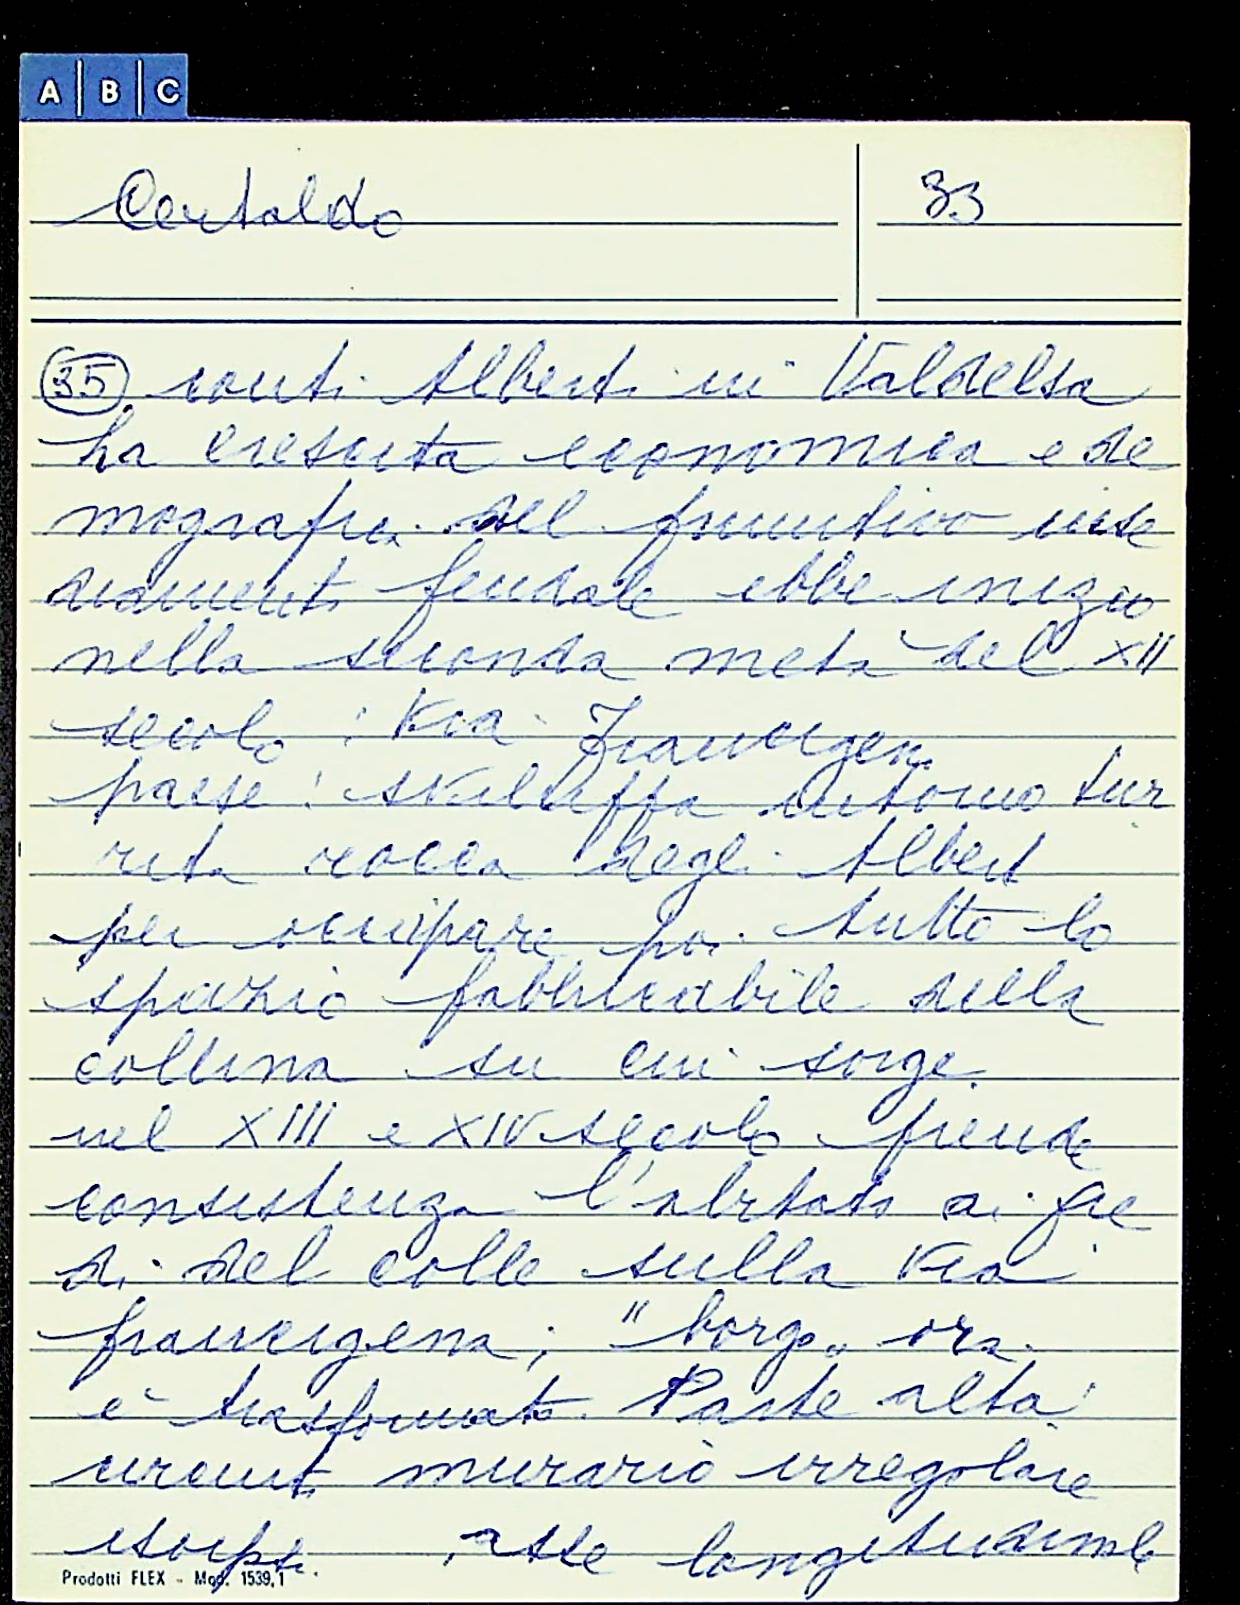 A | B | C
Certaldo
33
35 conti Alberti in Valdelsa
La crescita economica e de
mografica del primitivo inse
diamento feudale ebbe inizio
nella seconda metà del XII
secolo : Via Francigen.
paese : sviluppa intorno tur
rita rocca degli Alberti
per occupare poi tutto lo
spazio fabbricabile della
collina su cui sorge.
nel XIII e XIV secolo prende
consistenza l'abitato ai pie
di del colle sulla Via
francigena; "borgo" ora
è trasformato. Parte alta:
circuito murario irregolare
, asse longitudinale
Prodotti FLEX - Mod. 1539,1